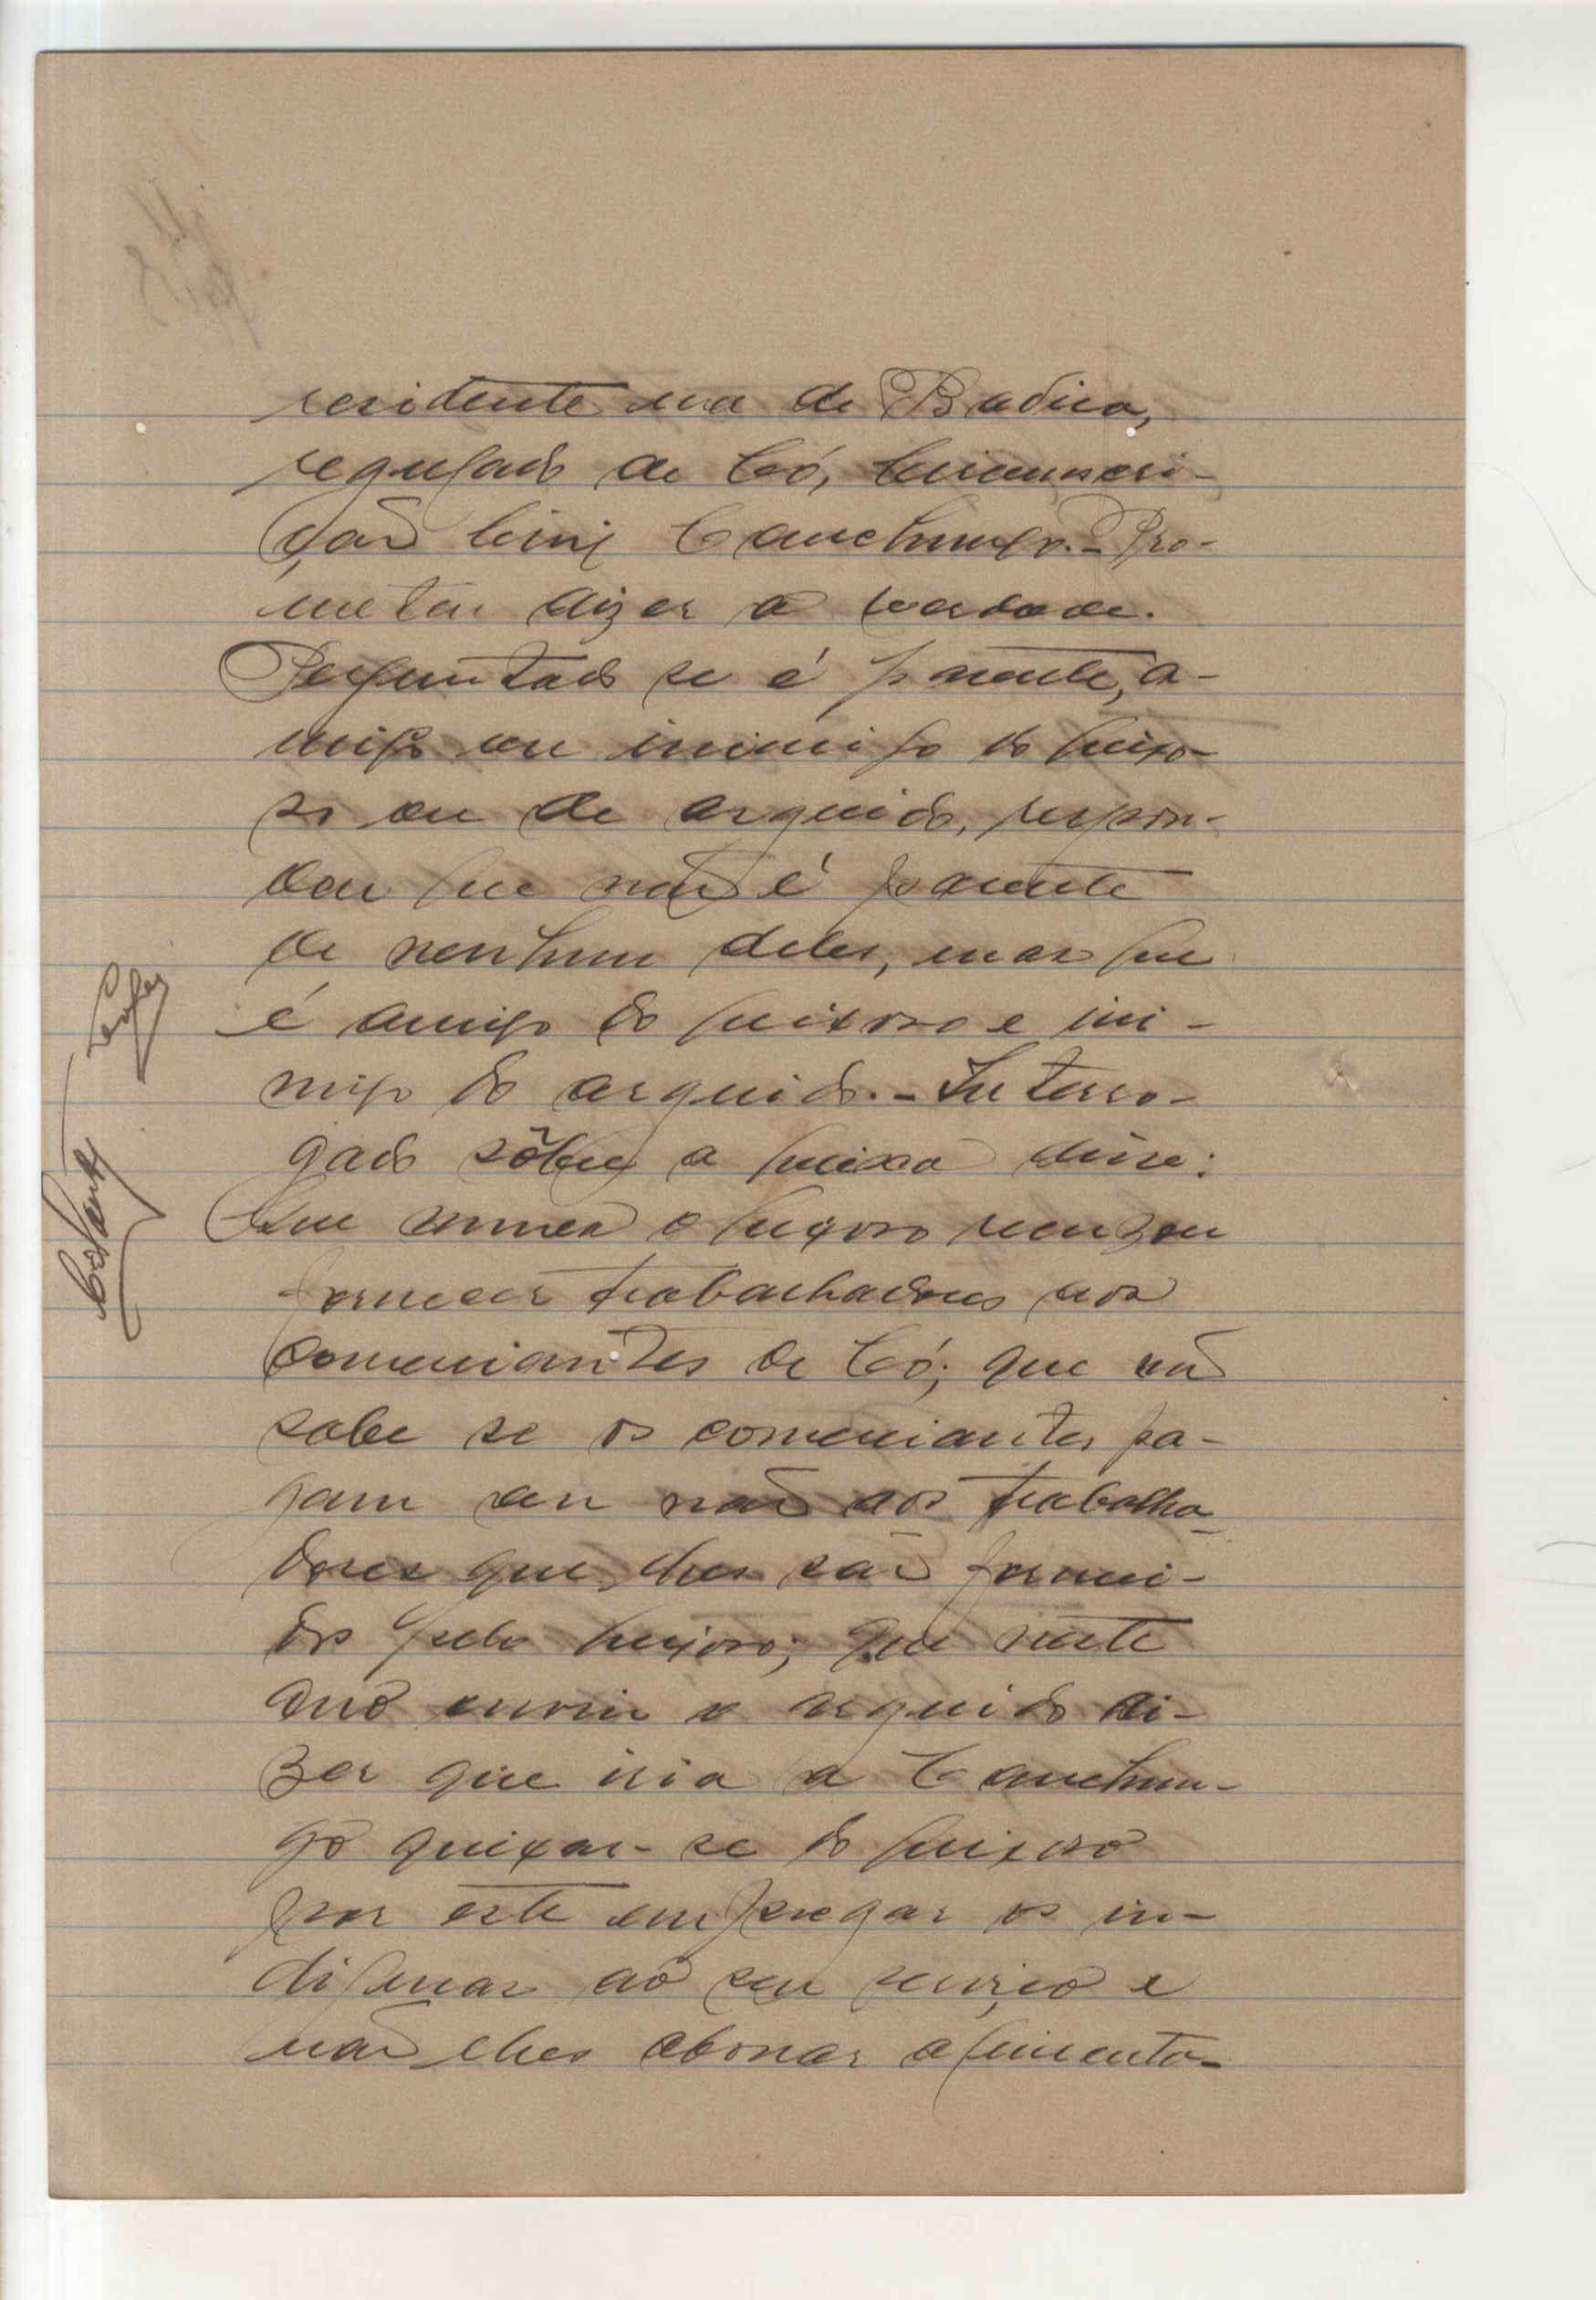 residente na de Badica,
regulado de Có, Circunscri-
ção Civil Canchungo. - Pro-
meteu dizer a verdade.
Perguntado se é parente, a-
migo ou inimigo do queixo-
so ou de arguido, respon-
deu que não é parente
de nenhum deles, mas que
é amigo do queixoso e ini-
migo do arguido. - Interro-
gado sôbre a queixa disse:
Que nunca o queixoso recusou
fornecer trabalhadores aos
comerciantes de Có; que não
sabe se os comerciantes pa-
gam ou não aos trabalha-
dores que lhes são forneci-
dos pelo queixoso; que neste
ano ouviu o arguido di-
zer que iria a Canchun-
go queixar-se do queixoso
por este empregar os in-
digenas ao seu serviço e
não lhes abonar alimenta-